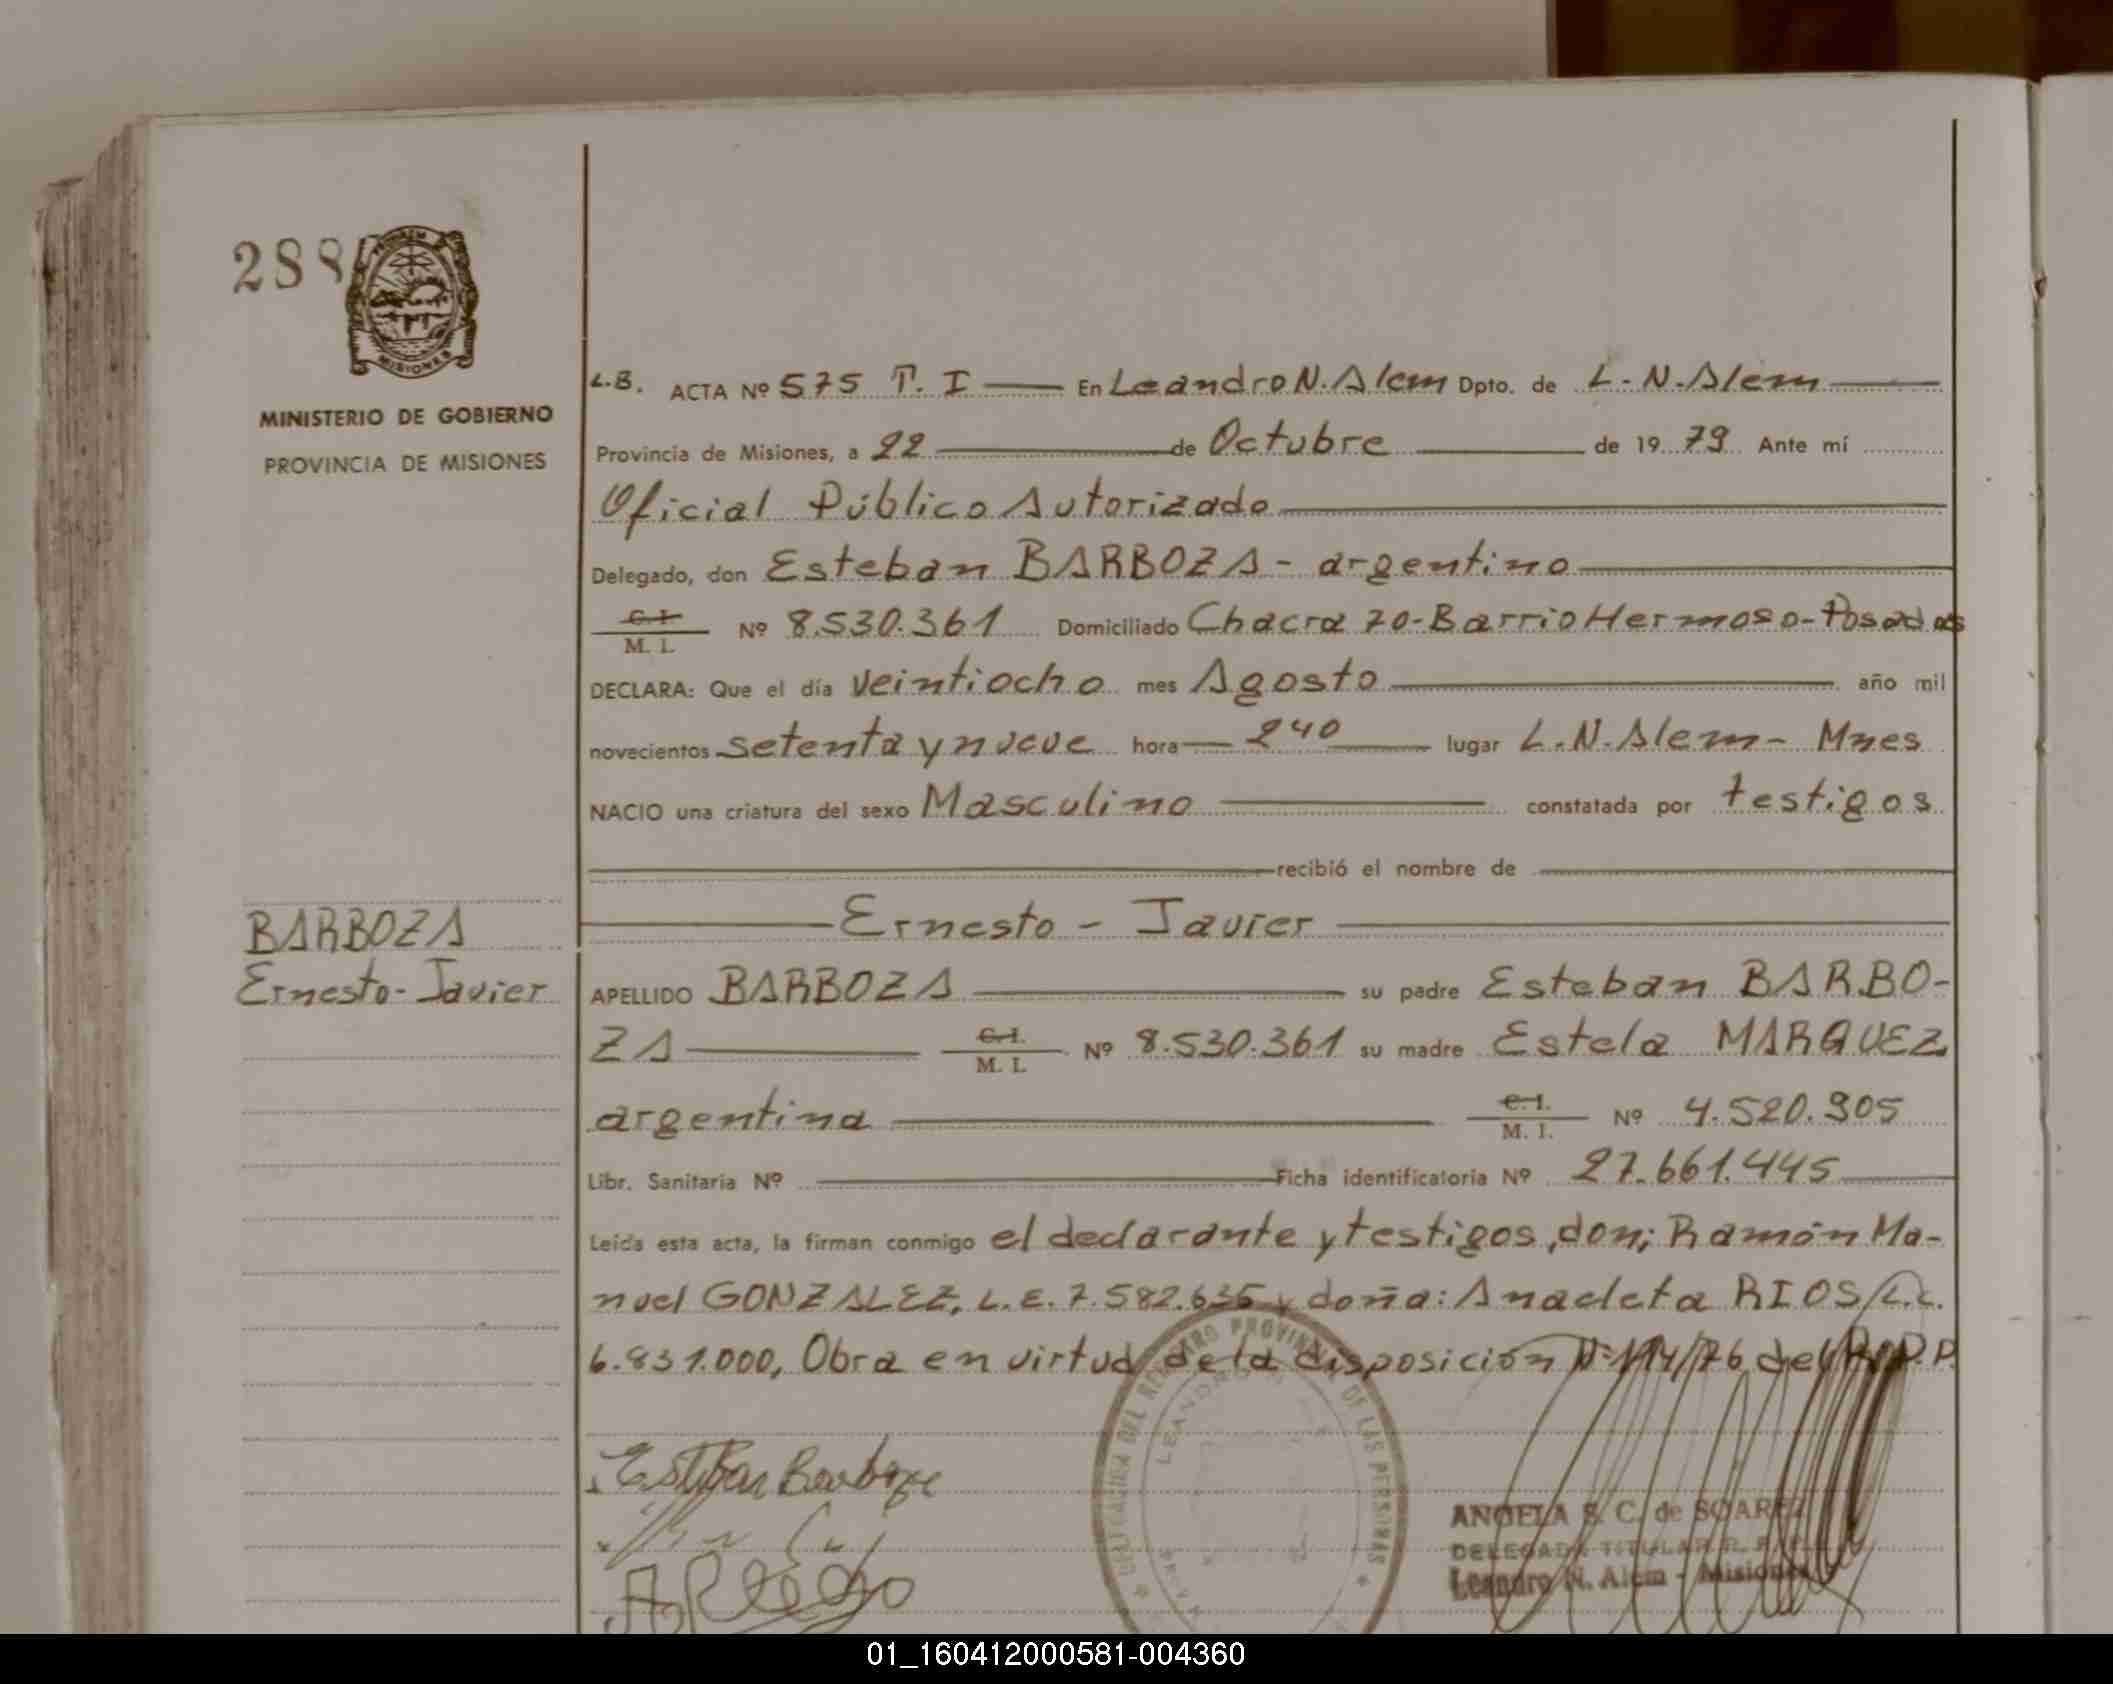 288
MISIONES
MINISTERIO DE GOBIERNO
PROVINCIA DE MISIONES
L.B. ACTA Nº 575 T. I En Leandro N. Alem Dpto. de L. N. Alem
Provincia de Misiones, a 22 de Octubre de 1979 Ante mí
Oficial Público Autorizado
Delegado, don Esteban BARBOZA - argentino
C.I. M. I. Nº 8.530.361 Domiciliado Chacra 70-Barrio Hermoso-Posadas
DECLARA: Que el día veintiocho mes Agosto año mil
novecientos setenta y nueve hora 240 lugar L.N. Alem - Mnes
NACIO una criatura del sexo Masculino constatada por testigos
recibió el nombre de
Ernesto - Javier
BARBOZA
Ernesto-Javier
APELLIDO BARBOZA su padre Esteban BARBO-
ZA C.I. M. I. Nº 8.530.361 su madre Estela MARQUEZ
argentina C.I. M. I. Nº 4.520.905
Libr. Sanitaria Nº Ficha identificatoria Nº 27.661.445
Leída esta acta, la firman conmigo el declarante y testigos, don; Ramón Ma-
nuel GONZALEZ, L.E. 7.582.635 y doña: Anacleta RIOS L.C.
6.831.000, Obra en virtud de la disposición Nº 114/76 del R.P.P.
Esteban Barboza
DELEGACION DEL REGISTRO PROVINCIAL DE LAS PERSONAS
LEANDRO
ANGELA S. C. de SOAREZ
DELEGADA TITULAR R. P. P.
Leandro N. Alem - Misiones
01_160412000581-004360